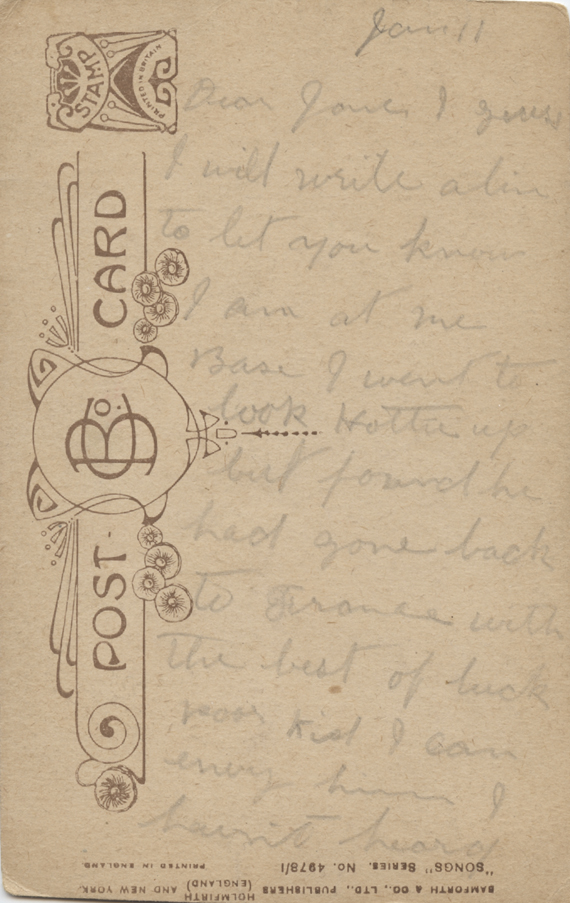 Jan 11
Dear Jane I guess
I will write a line
to let you know
I am at me
Base I went to
look Hottie up
but found he
had gone back
to France with
the best of luck
poor kid I can
envy him I
haven't heard
STAMP
PRINTED IN BRITAIN
POST-CARD
B Co.
BAMFORTH & CO., LTD., PUBLISHERS HOLMFIRTH (ENGLAND) AND NEW YORK.
"SONGS" SERIES. No. 4978/1
PRINTED IN ENGLAND.